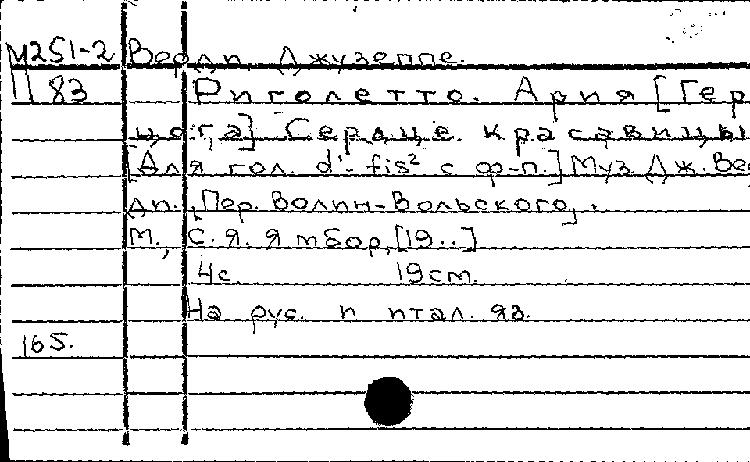 М251-2 Верди, Джузеппе.
П 83 Риголетто. Ария [Гер
цога] Сердце красавицы
[Для гол. d¹-fis² с ф-п.] Муз. Дж. Вер
ди. Пер. Волин-Вольского.
М., С. Я. Ямбор, [19..]
4с. 19см.
На рус. и итал. яз.
165.